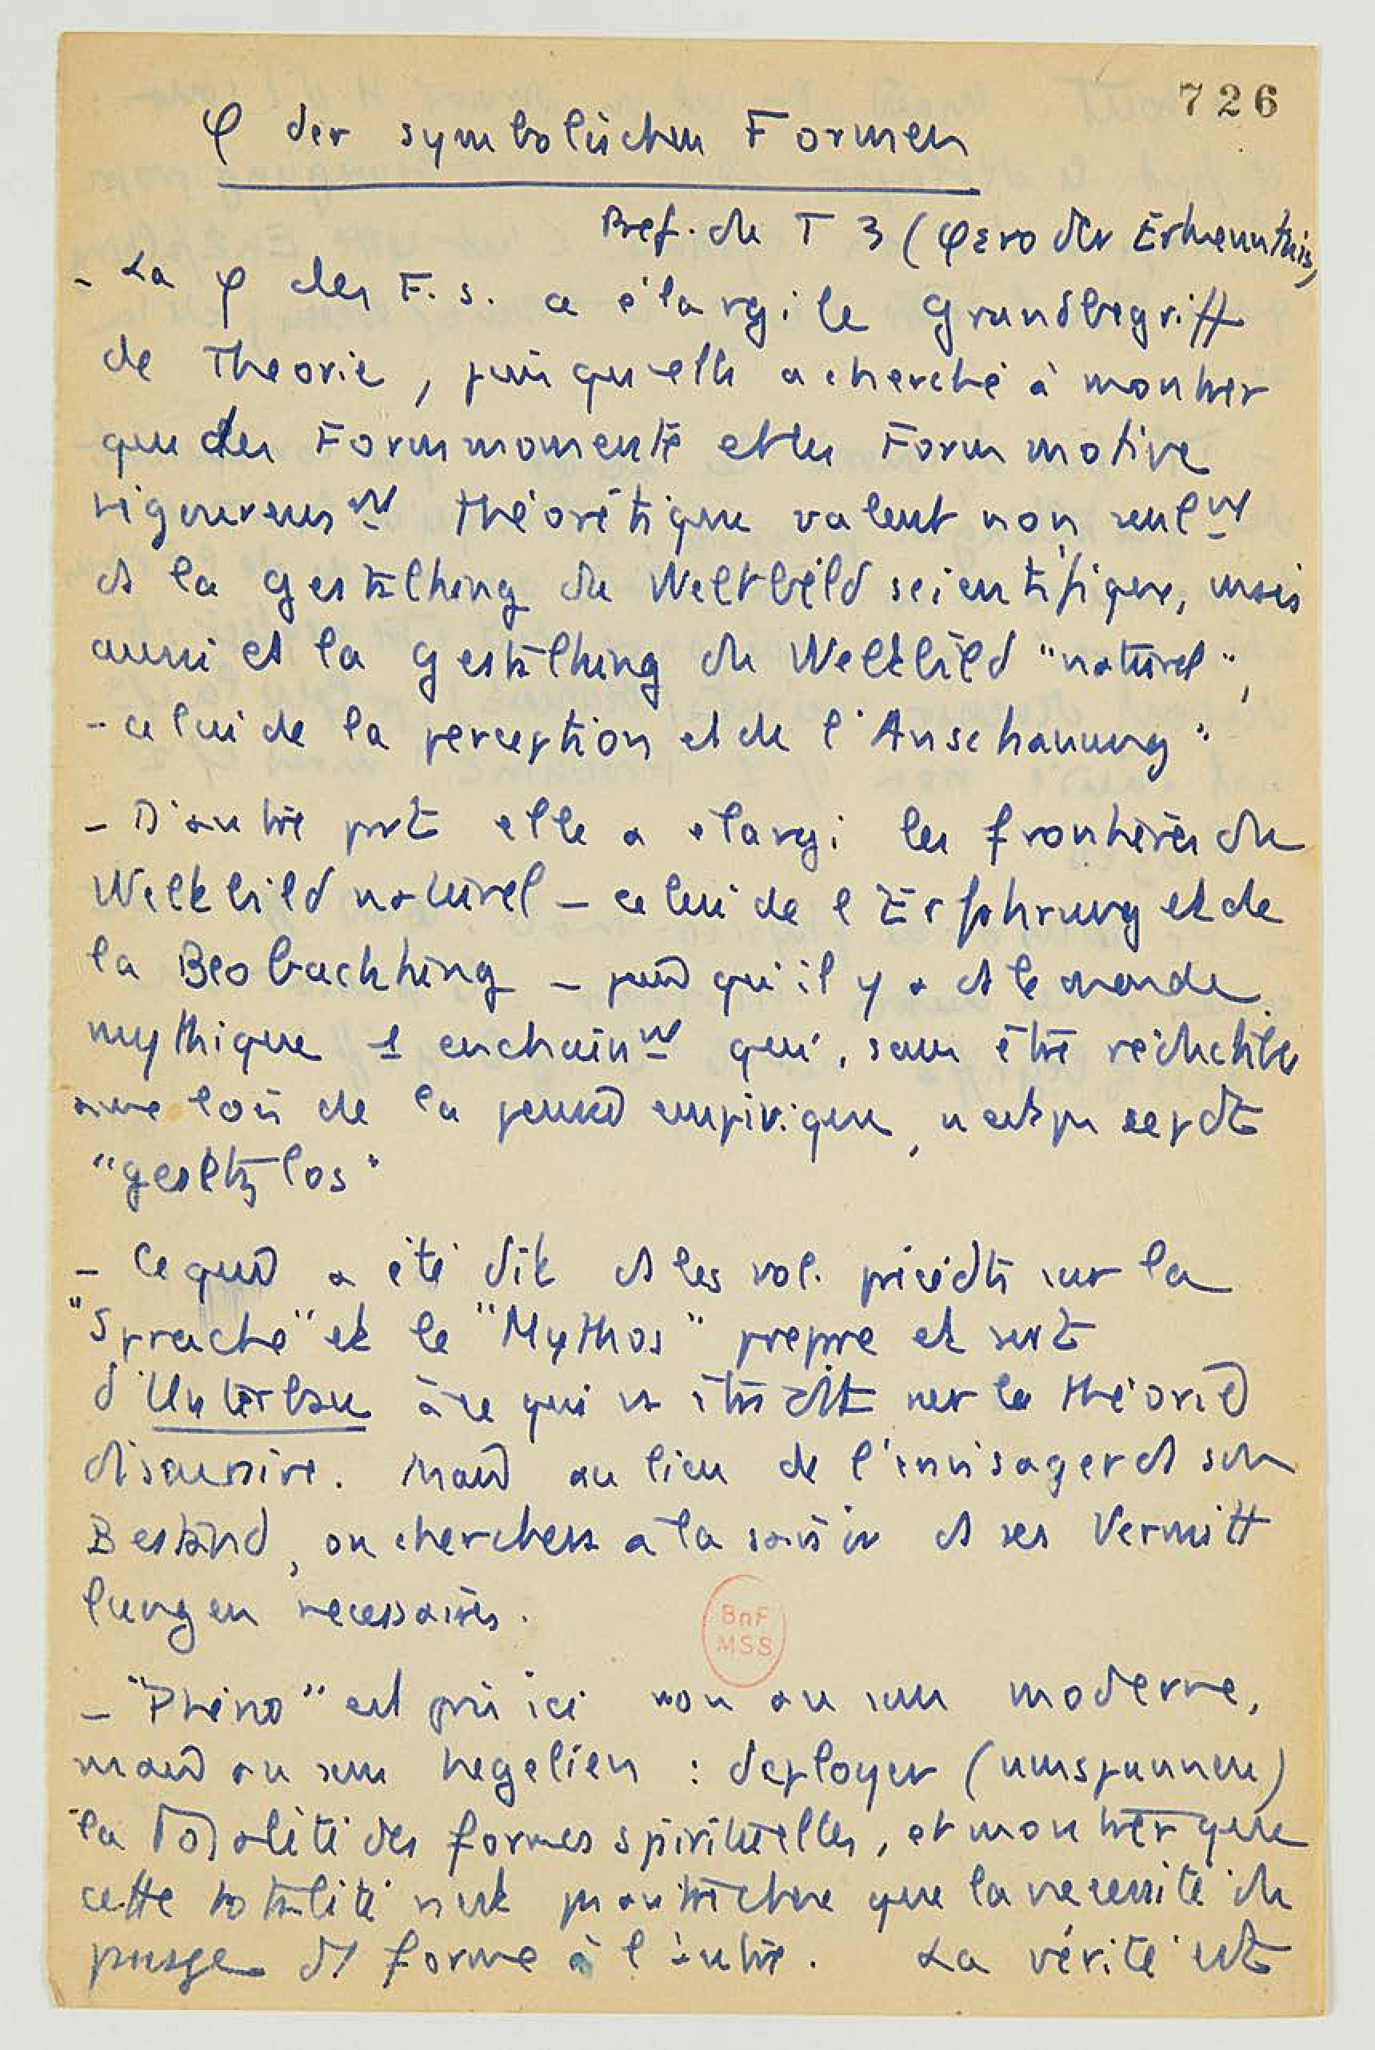 726
φ der symbolischen Formen
Pref. du T 3 (φéno der Erkenntnis)
- La φ des F. s. a élargi le Grundbegriff
de Theorie, puisqu'elle a cherché à montrer
que des Formmomente et des Form motive
rigoureusmt théorétique valent non seulmt
ds la Gestaltung du Weltbild scientifique, mais
aussi ds la Gestaltung du Weltbild "naturel",
- celui de la perception et de l'Anschauung"
- D'autre part elle a élargi les frontières du
Weltbild naturel - celui de l'Erfahrung et de
la Beobachtung - qu'il y a ds le monde
mythique 1 enchaînmt qui, sans être réductible
aux lois de la pensée empirique, n'est pas cepdt
"gesetzlos"
- Ce qui a été dit ds les vol. précédts sur la
"Sprache" et le "Mythos" prépare et sert
d'Unterbau à ce qui va être dit sur la théorie
discursive. Mais au lieu de l'envisager ds son
Bestand, on cherchera à la saisir ds ses Vermitt
lungen necessaires.
BnF
MSS
- "Phéno" est pris ici non au sens moderne,
mais au sens hegelien : deployer (umspannen)
la totalité des formes spirituelles, et montrer que
cette totalité n'est pas autre chose que la necessité du
passage d'1 forme à l'autre. La vérité est